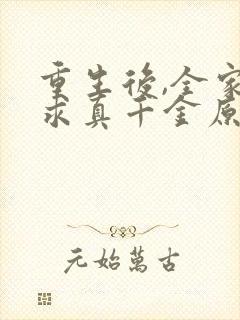 重生後,全家
求真千金原
元始萬古